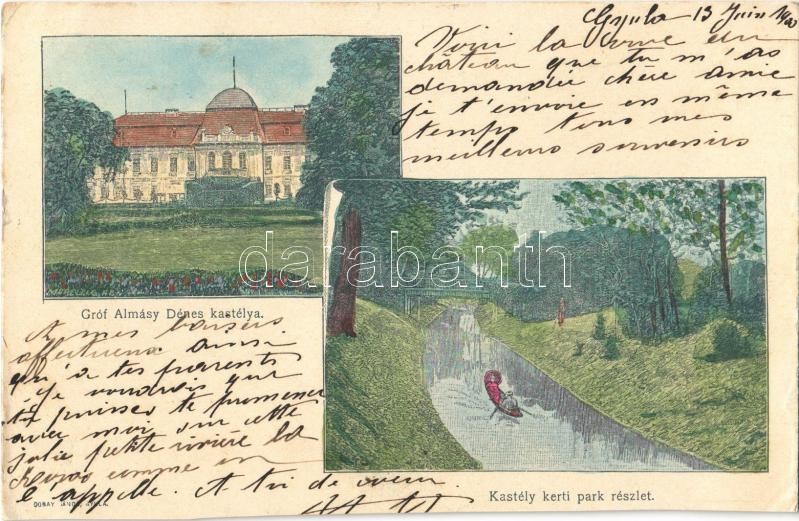 Gyula 13 Juin 1900
Voici la vue du
château que tu m'as
demandée chère amie
je t'envoie en même
temps tous mes
meilleurs souvenirs
darabanth
Gróf Almásy Dénes kastélya.
A mes baisers
affectueux ainsi
qu'à tes parents
Je voudrais que
tu puisses te promener
avec moi sur cette
jolie petite rivière la
comme on
l'appelle. A toi de coeur
Kastély kerti park részlet.
DOBAY JÁNOS, GYULA.